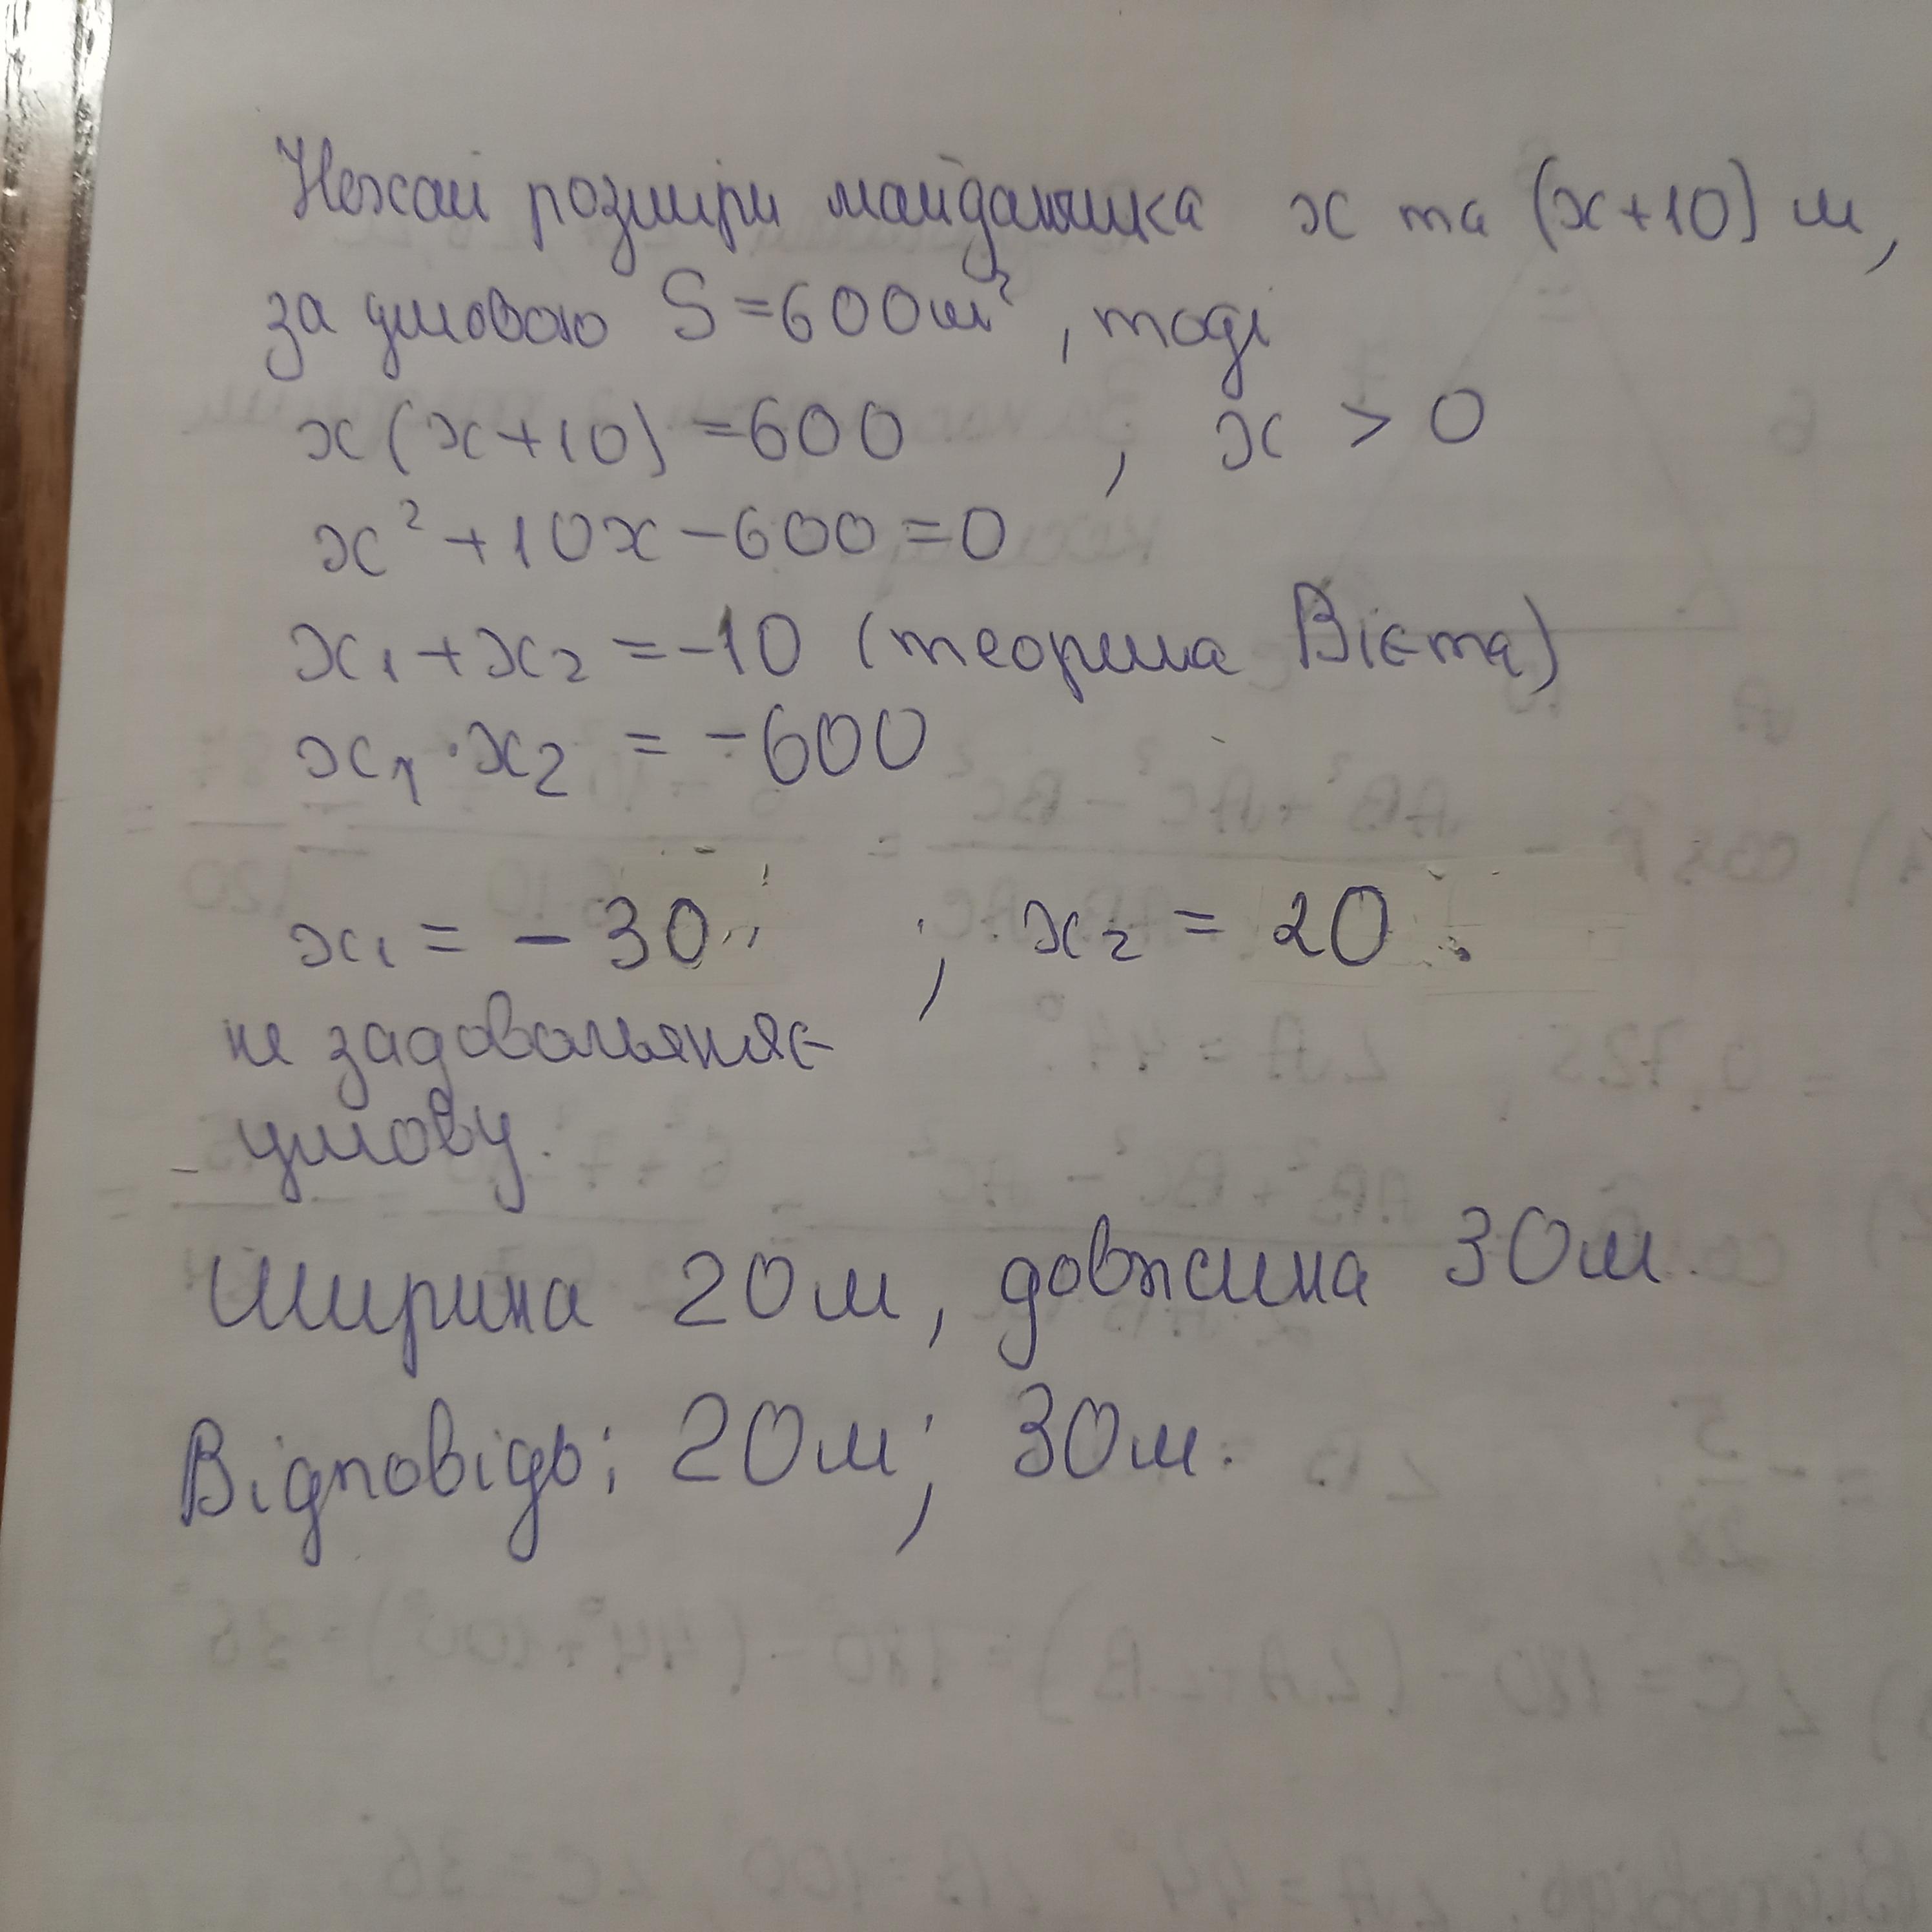 Нехай розміри майданчика x та (x+10) м,
за умовою S=600м², тоді
x(x+10)=600 , x > 0
x²+10x-600=0
x₁+x₂=-10 (теорема Вієта)
x₁·x₂ = -600
x₁ = -30 ; x₂ = 20
не задовольняє
умову.
Ширина 20м, довжина 30м.
Відповідь: 20м; 30м.